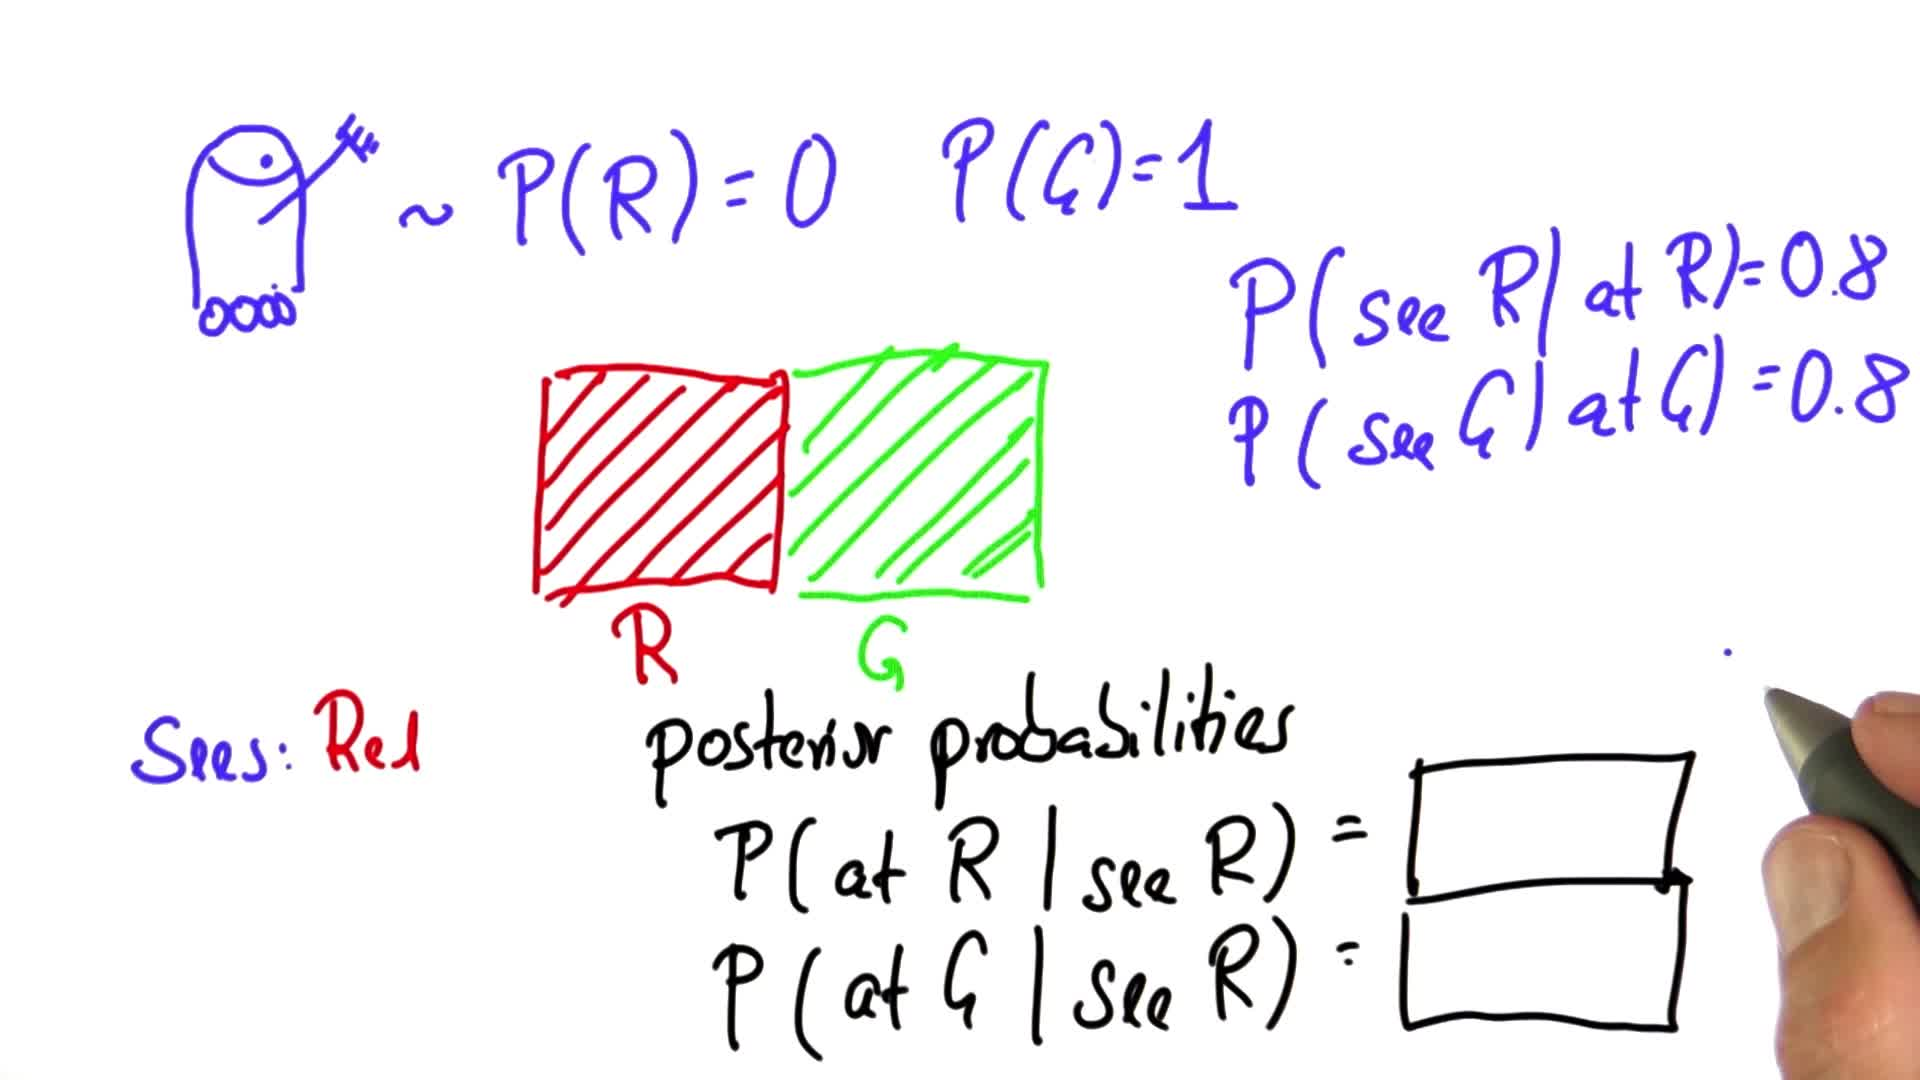 ~ P(R) = 0 P(G) = 1
P(see R | at R) = 0.8
P(see G | at G) = 0.8
R G
Sees: Red
posterior probabilities
P(at R | see R) =
P(at G | see R) =